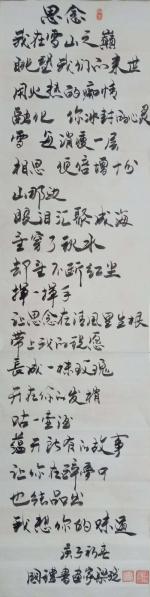 思念
我在雪山之巅
眺望我们的来世
用火热的痴情
融化 你冰封的心灵
雪 每消退一层
相思 便倍增十分
山那边
眼泪汇聚成海
望穿了秋水
却望不断红尘
挥一挥手
让思念在清风里生根
带上我的祝愿
长成一株玫瑰
开在你的发梢
咕一壶酒
蕴开所有的故事
让你在醉梦中
也能品出
我想你的味道
庚子初冬